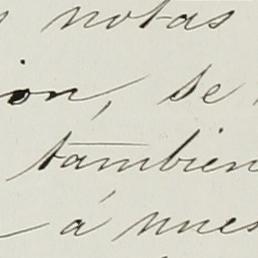 notas
ion, se
tambien
á nues